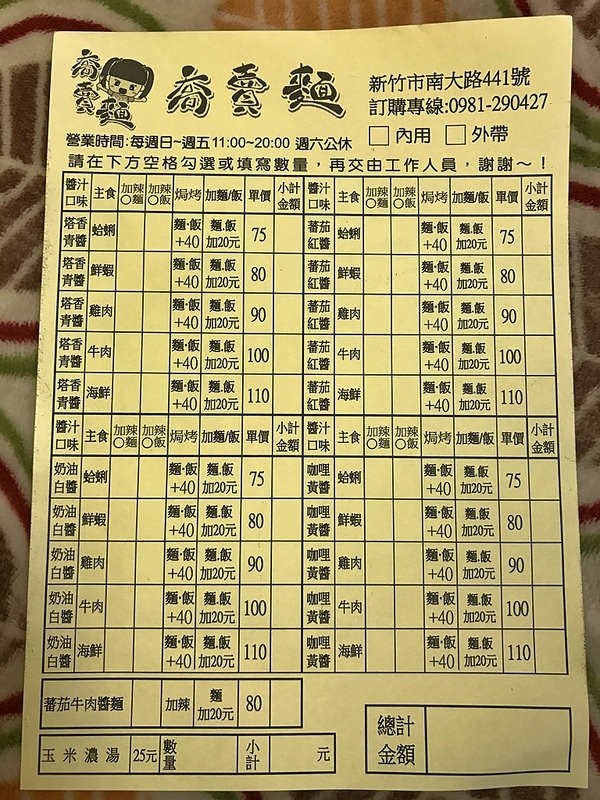 喬賣麵
喬賣麵
新竹市南大路441號
訂購專線:0981-290427
營業時間:每週日~週五11:00~20:00 週六公休
內用 外帶
請在下方空格勾選或填寫數量，再交由工作人員，謝謝~！
醬汁口味 主食 加辣○麵 加辣○飯 焗烤 加麵/飯 單價 小計金額 醬汁口味 主食 加辣○麵 加辣○飯 焗烤 加麵/飯 單價 小計金額
塔香青醬 蛤蜊 麵·飯+40 麵.飯加20元 75 蕃茄紅醬 蛤蜊 麵·飯+40 麵.飯加20元 75
塔香青醬 鮮蝦 麵·飯+40 麵.飯加20元 80 蕃茄紅醬 鮮蝦 麵·飯+40 麵.飯加20元 80
塔香青醬 雞肉 麵·飯+40 麵.飯加20元 90 蕃茄紅醬 雞肉 麵·飯+40 麵.飯加20元 90
塔香青醬 牛肉 麵·飯+40 麵.飯加20元 100 蕃茄紅醬 牛肉 麵·飯+40 麵.飯加20元 100
塔香青醬 海鮮 麵·飯+40 麵.飯加20元 110 蕃茄紅醬 海鮮 麵·飯+40 麵.飯加20元 110
醬汁口味 主食 加辣○麵 加辣○飯 焗烤 加麵/飯 單價 小計金額 醬汁口味 主食 加辣○麵 加辣○飯 焗烤 加麵/飯 單價 小計金額
奶油白醬 蛤蜊 麵·飯+40 麵.飯加20元 75 咖哩黃醬 蛤蜊 麵·飯+40 麵.飯加20元 75
奶油白醬 鮮蝦 麵·飯+40 麵.飯加20元 80 咖哩黃醬 鮮蝦 麵·飯+40 麵.飯加20元 80
奶油白醬 雞肉 麵·飯+40 麵.飯加20元 90 咖哩黃醬 雞肉 麵·飯+40 麵.飯加20元 90
奶油白醬 牛肉 麵·飯+40 麵.飯加20元 100 咖哩黃醬 牛肉 麵·飯+40 麵.飯加20元 100
奶油白醬 海鮮 麵·飯+40 麵.飯加20元 110 咖哩黃醬 海鮮 麵·飯+40 麵.飯加20元 110
蕃茄牛肉醬麵 加辣 麵加20元 80
總計金額
玉米濃湯 25元 數量 小計 元